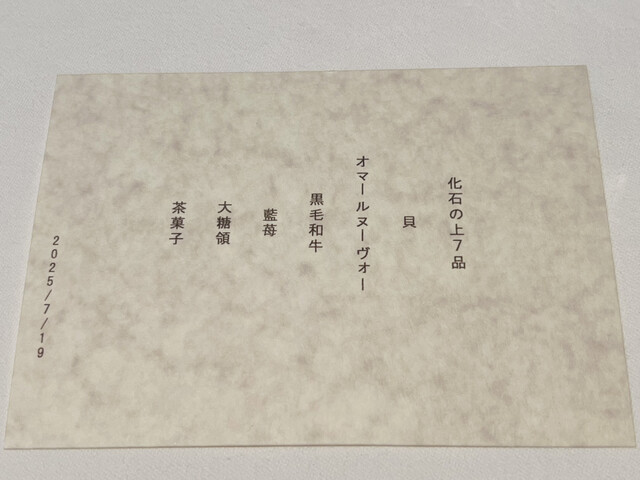 化石の上7品
貝
オマールヌーヴォー
黒毛和牛
藍苺
大糖領
茶菓子
2025/7/19